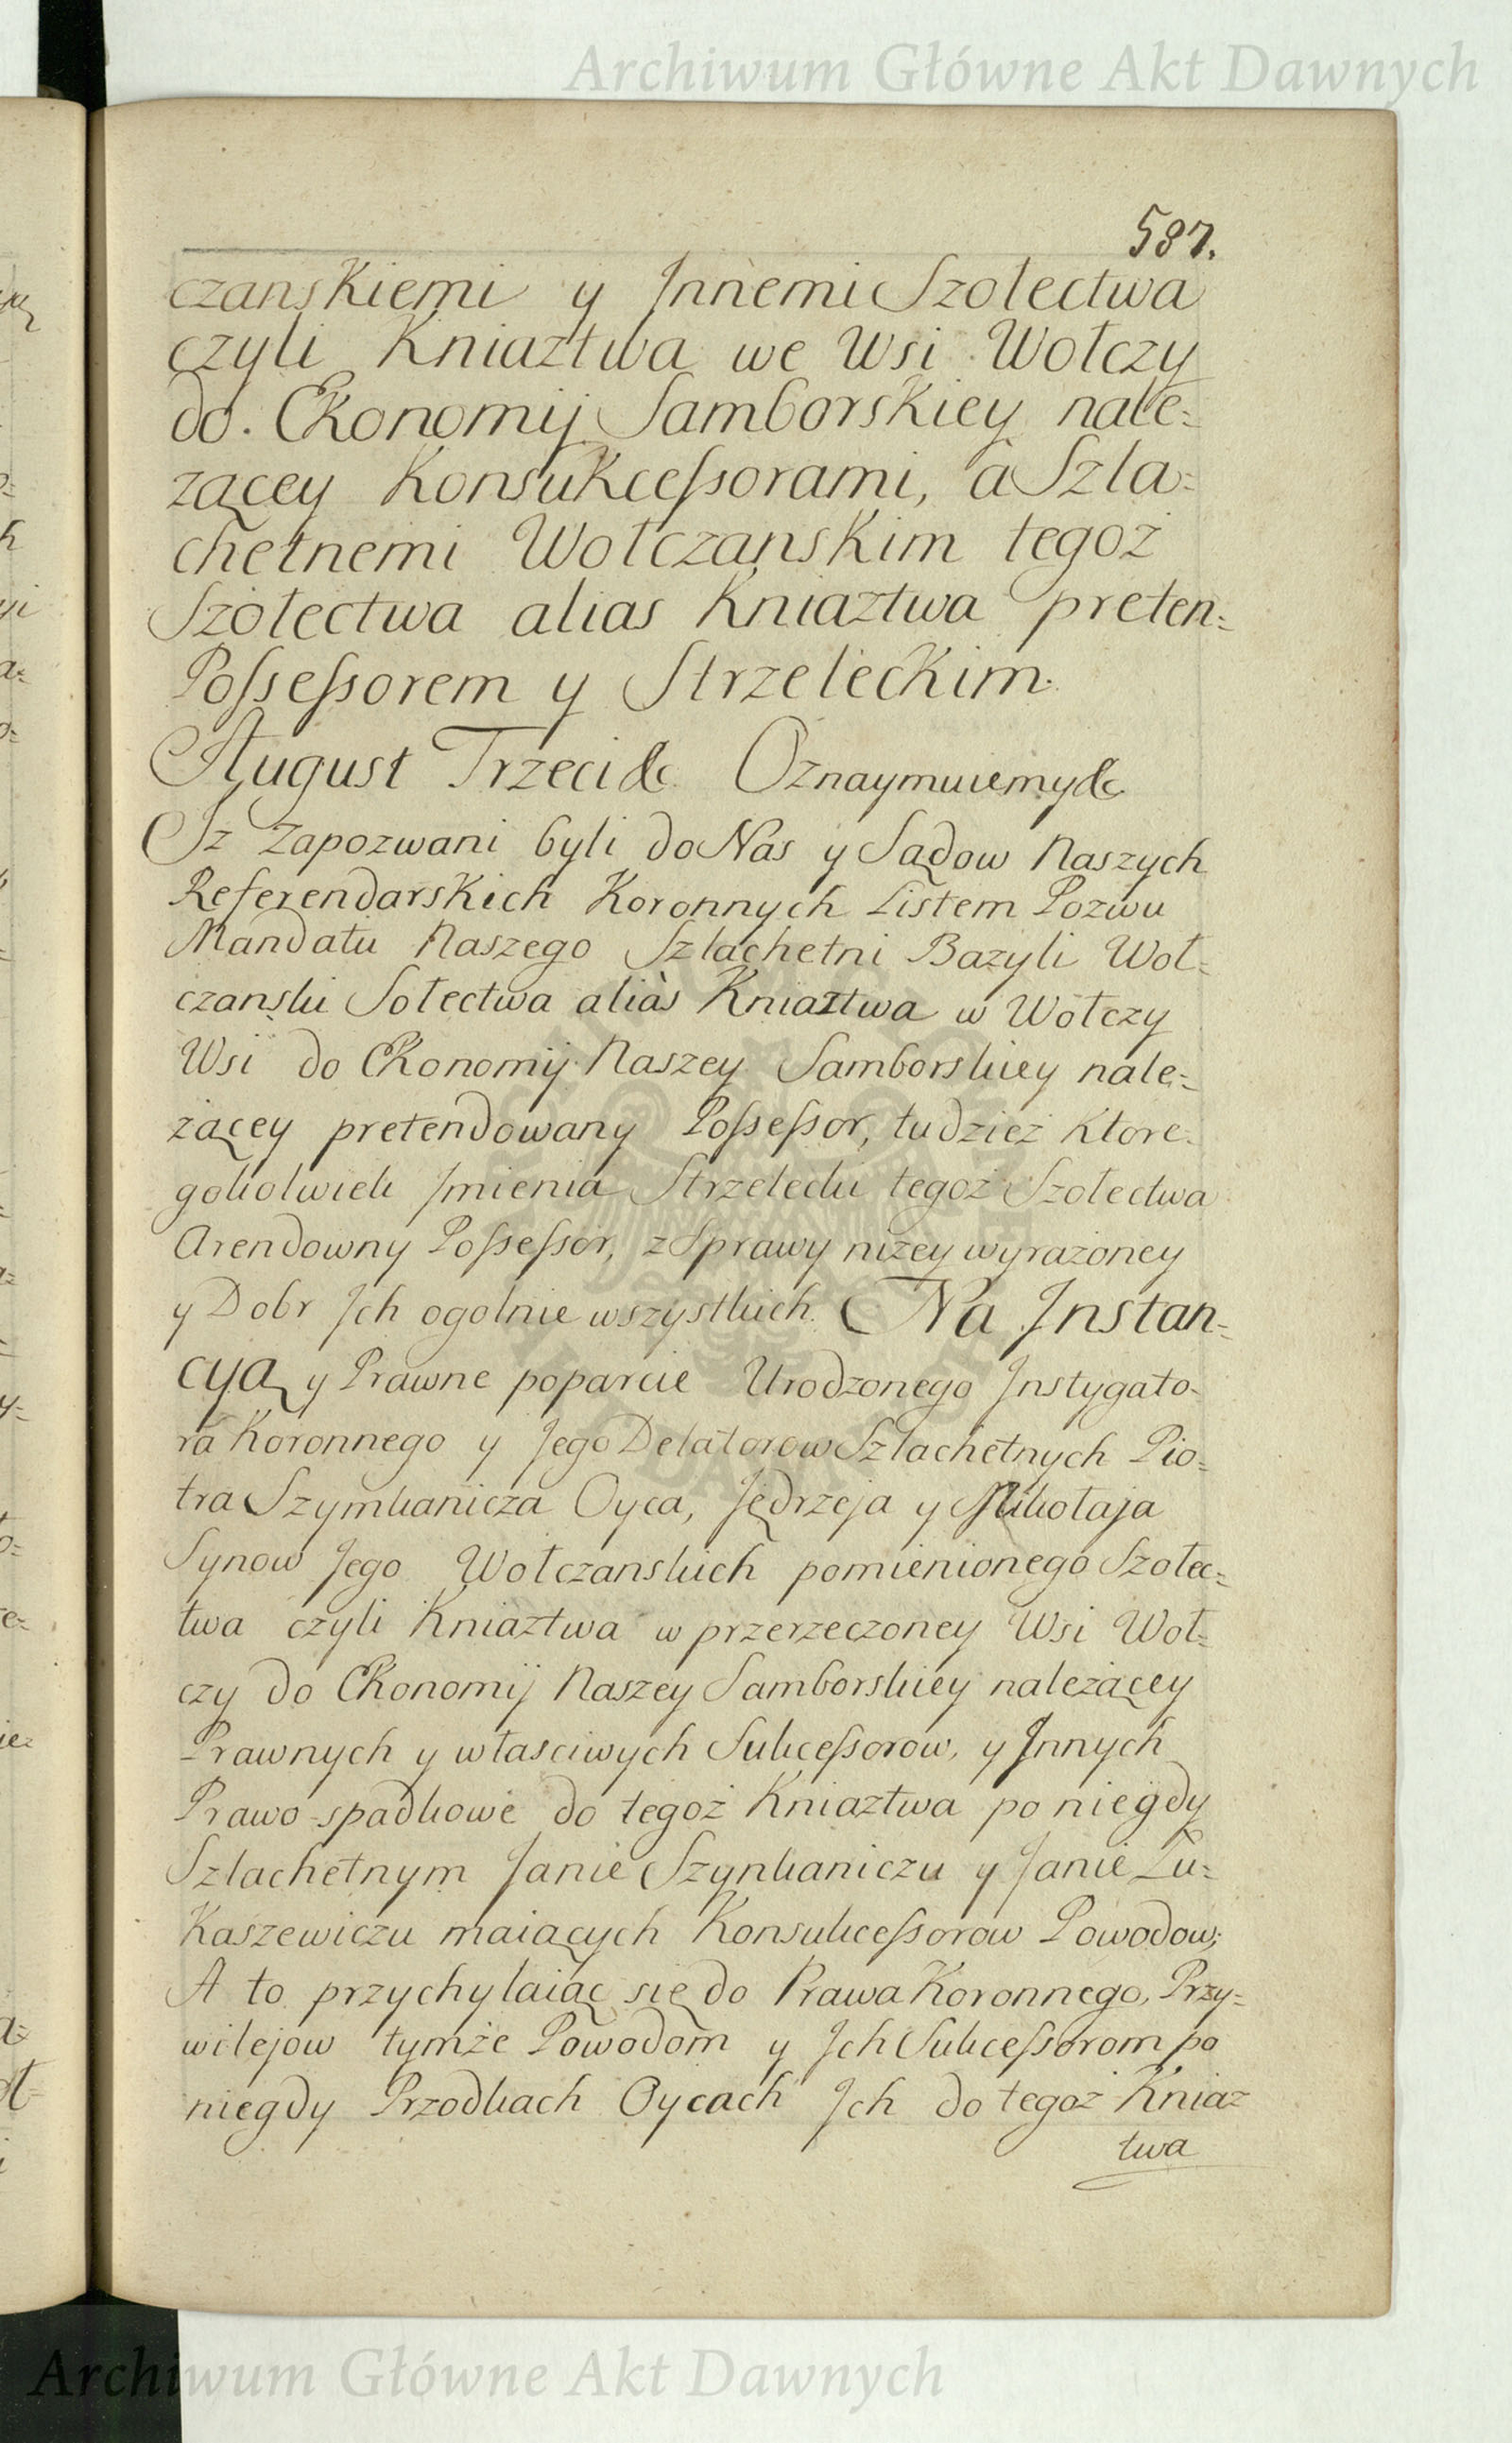 Archiwum Główne Akt Dawnych
587.
czanskiemi y Jnnemi Szołectwa
czyli Kniaztwa we Wsi Wołczy
do Ekonomij Samborskiey nale=
zącey Konsukcessorami, à Szla=
chetnemi Wołczanskim tegoż
Szołectwa alias Kniaztwa preten=
Possessorem y Strzeleckim.
August Trzeci &c Oznaymuiemy &c
Jż Zapozwani byli do Nas y Sądow Naszych
Referendarskich Koronnych Listem Pozwu
Mandatu Naszego Szlachetni Bazyli Woł=
czanski Sołectwa aliàs Kniaztwa w Wołczy
Wsi do Ekonomij Naszey Samborskiey nale=
żącey pretendowany Possessor, tudzież Ktore=
gokolwiek Jmienia Strzelecki tegoż Szołectwa
Arendowny Possessor, z Sprawy niżey wyrażoney
y Dobr Jch ogolnie wszystkich. Na Jnstan=
cyą y Prawne poparcie Urodzonego Jnstygato=
ra Koronnego y Jego Delatorow Szlachetnych Pio=
tra Szymkanicza Oyca, Jędrzeja y Mikołaja
Synow Jego Wołczanskich pomienionego Szołec=
twa czyli Kniaztwa w przerzeczoney Wsi Woł=
czy do Ekonomij Naszey Samborskiey należącey
Prawnych y własciwych Sukcessorow, y Jnnych
Prawo spadkowe do tegoż Kniaztwa po niegdy
Szlachetnym Janie Szynkaniczu y Janie Łu=
Kaszewiczu maiących Konsukcessorow Powodow;
A to przychylaiąc się do Prawa Koronnego, Przy=
wilejow tymże Powodom y Jch Sukcessorom po
niegdy Przodkach Oycach Jch do tegoż Kniaz
twa
Archiwum Główne Akt Dawnych